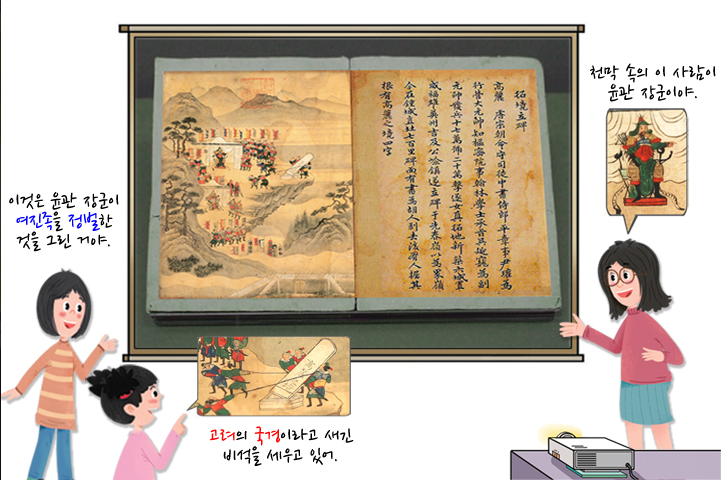 천막 속의 이 사람이
윤관 장군이야.
이것은 윤관 장군이
여진족을 정벌한
것을 그린 거야.
拓境立碑
高麗 睿宗朝命守司徒中書侍郎平章事尹瓘爲
行營大元帥知樞密院事翰林學士承旨吳延寵爲副
元帥發兵十七萬 二十萬擊逐女真拓地新築六城置
咸福雄英州吉及公嶮鎭遂立碑于先春嶺以爲界嶺
今在鍾城直北七百里碑面有書爲胡人剝去後有人掘其
根有高麗之境四字
고려의 국경이라고 새긴
비석을 세우고 있어.